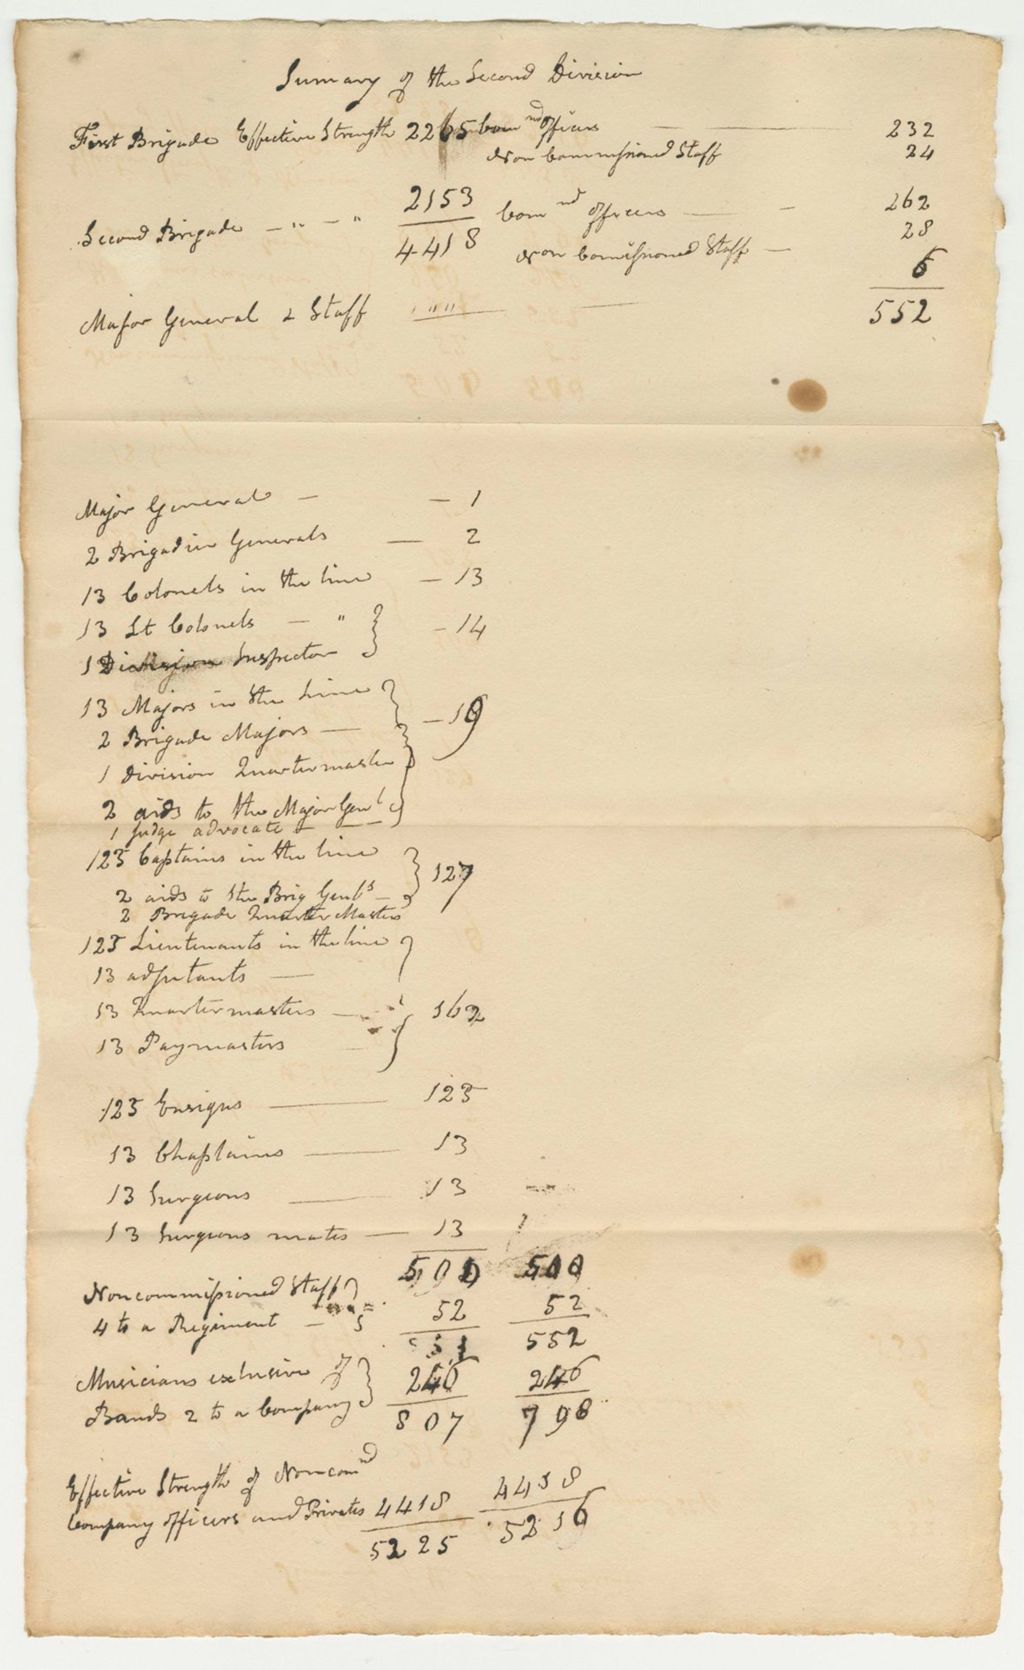 Sumary of the Second Division
First Brigade Effective Strength 2265 Comnd officers — 232
Non Commissioned Staff 24
Second Brigade — " — " 2153 Comnd officers — 262
4418 Non Commissioned Staff — 28
6
Major General & Staff " " " — 552
Major General — — 1
2 Brigadier Generals — 2
13 Colonels in the line — 13
13 Lt Colonels — " } — 14
1 Division Inspector
13 Majors in the Line
2 Brigade Majors — } — 19
1 Division Quartermaster
2 aids to the Major Genl
1 Judge advocate —
123 Captains in the line } 127
2 aids to the Brig Genls —
2 Brigade Quarter Masters
123 Lieutenants in the line
13 adjutants —
13 Quartermasters — } 162
13 Paymasters
123 Ensigns — 123
13 Chaplains — 13
13 Surgeons — 13
13 Surgeons mates — 13
500 500
Noncommissioned Staff }
4 to a Regiment — 52 52
552
Musicians exclusive of } 246 246
Bands 2 to a Company 807 798
Effective Strength of Noncomnd
Company officers and Privates 4418 4418
5225 5216